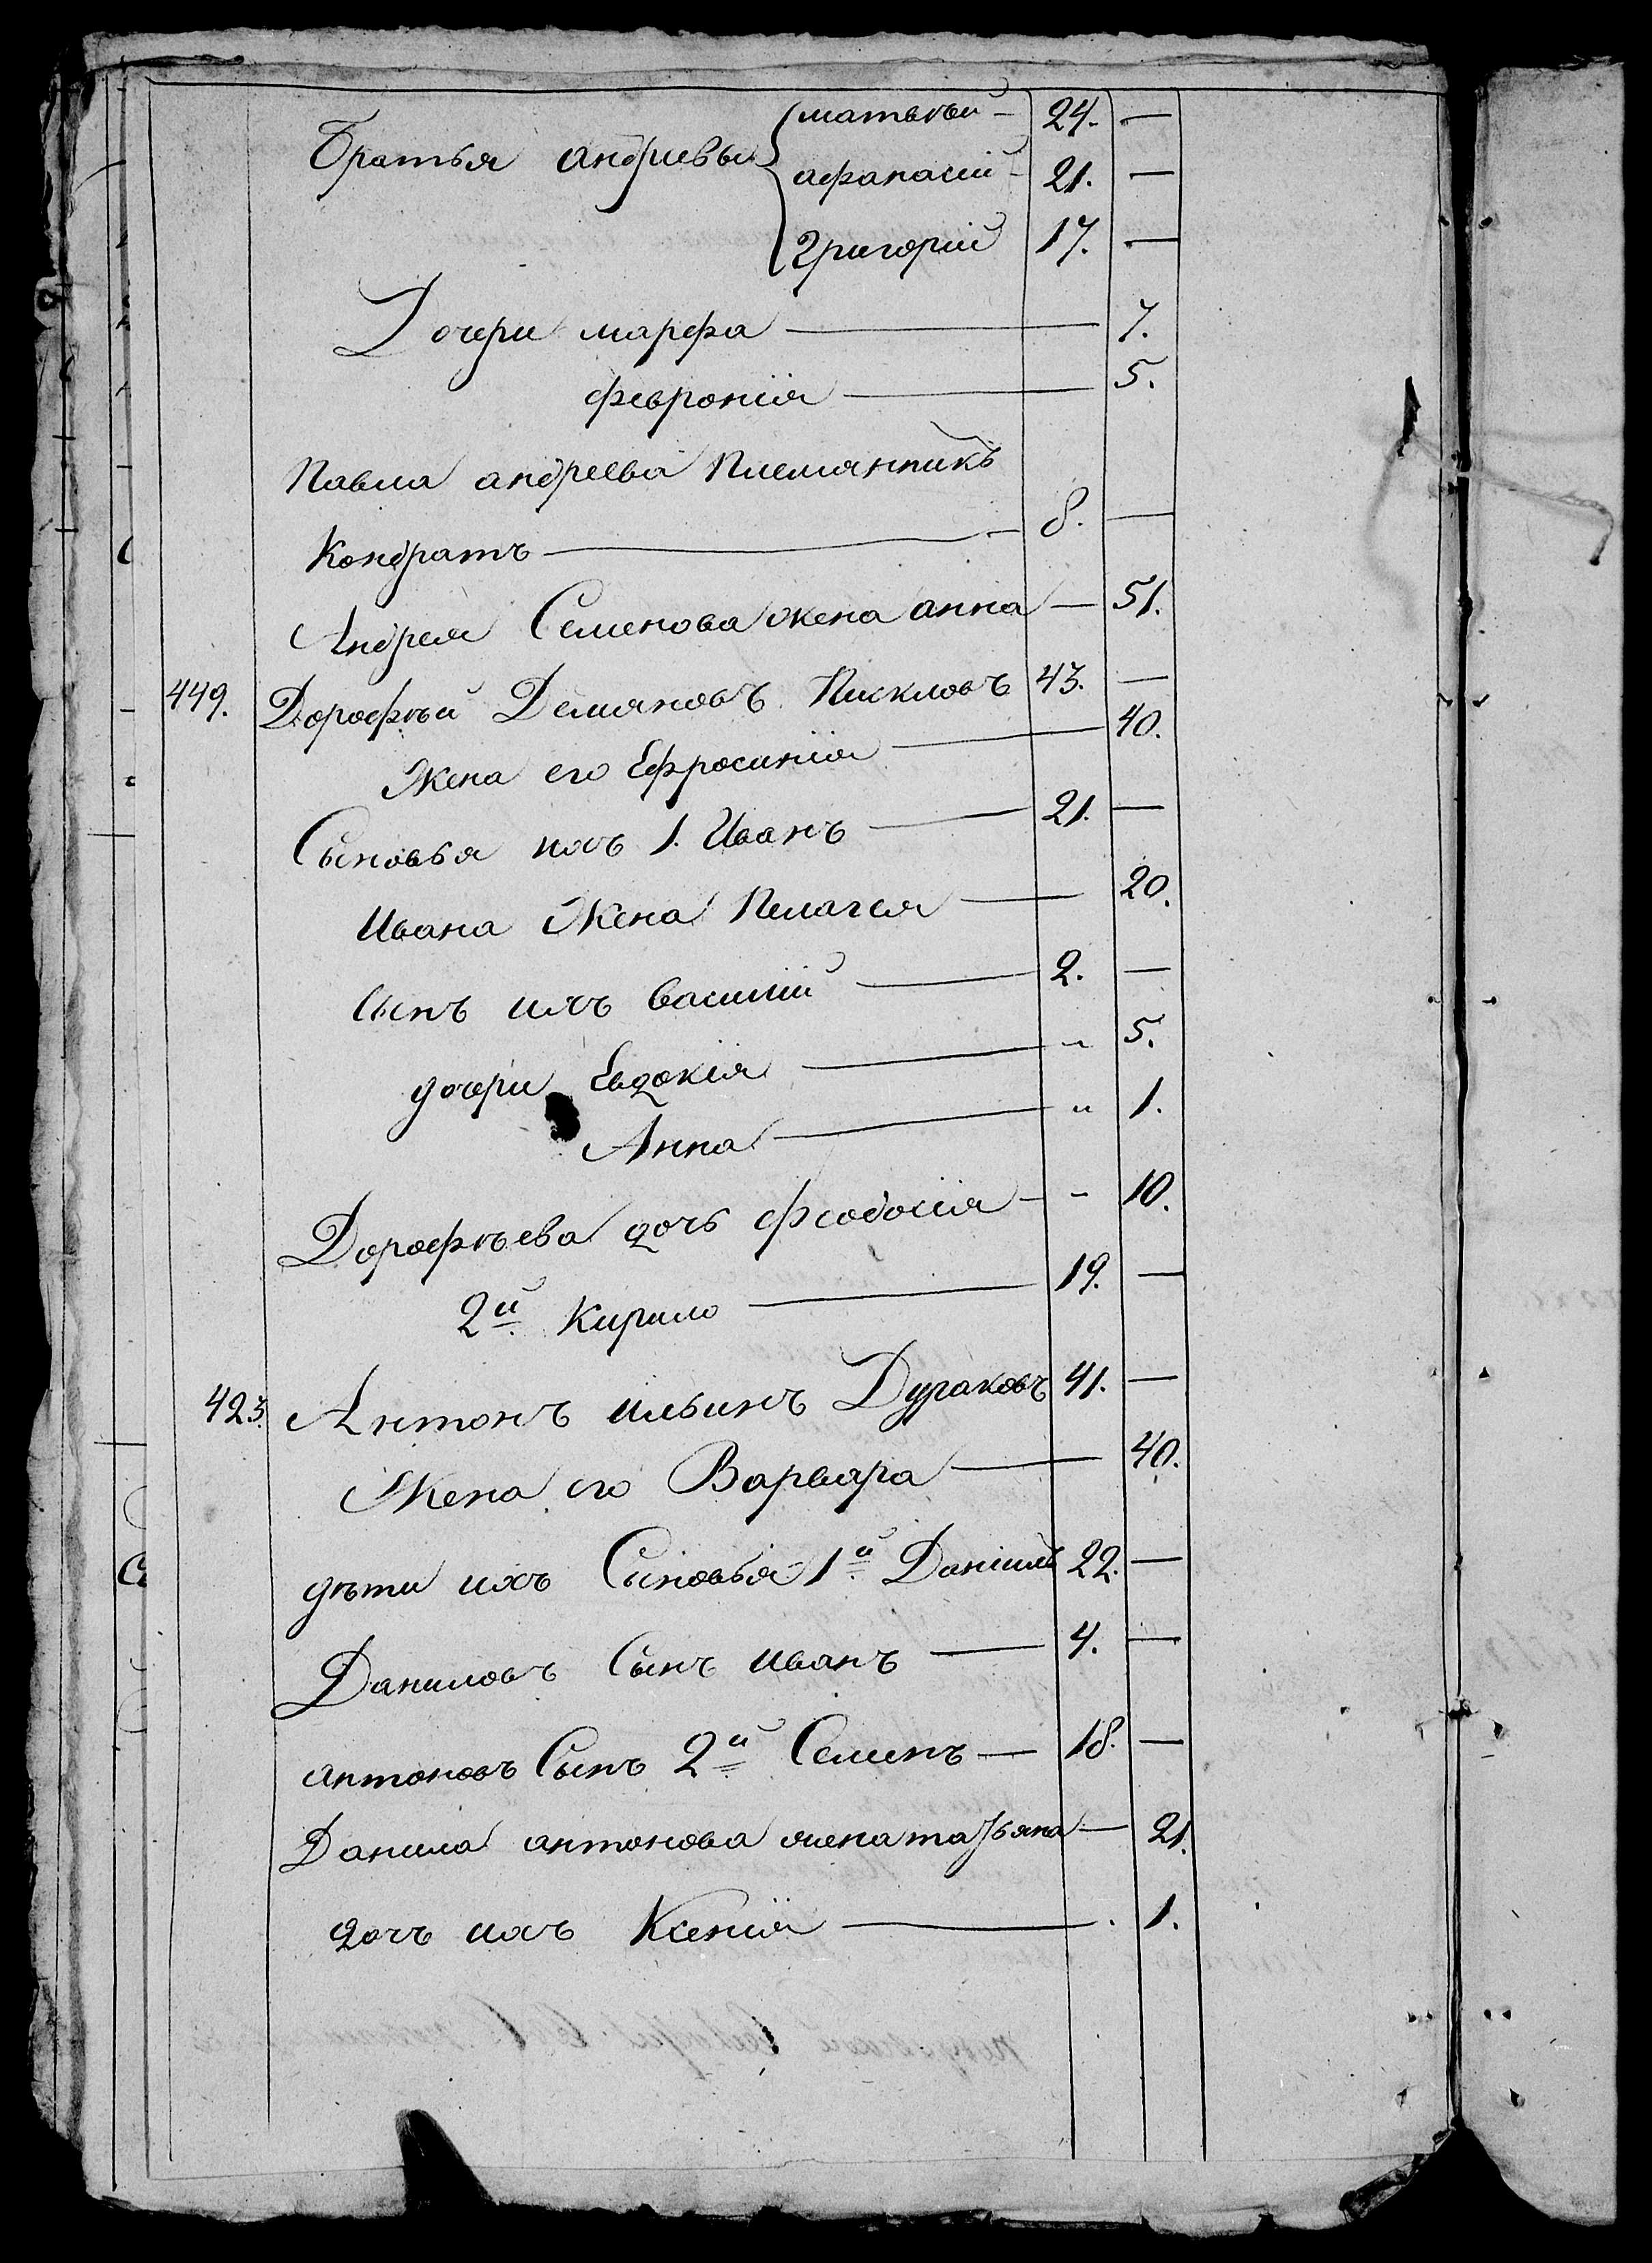 Братья андриевы { матвѣй — 24. —
афанасий — 21. —
григорий 17. —
Дочери марфа — 7.
феврония — 5.
Павла андреева Племянникъ
Кондратъ — 8. —
Андрея Семенова жена анна — 51.
449. Дорофѣй Демяновъ Пискловъ 43. —
Жена его Ефросинія — 40.
Сыновья ихъ 1. Иванъ — 21. —
Ивана Жена Пелагея — 20.
сынъ ихъ василий — 2. —
дочери Евдокія — " 5.
Анна — " 1.
Дорофѣева дочь феодосія — " 10.
2й Кирило — 19. —
423. Антонъ ильинъ Дураковъ 41. —
Жена его Варвара — 40.
дѣти ихъ Сыновья 1й Даніилъ 22. —
Даниловъ Сынъ иванъ — 4. —
антоновъ Сынъ 2й Семинъ — 18. —
Данила антонова жена татьяна — 21.
дочь ихъ Ксенія — 1.